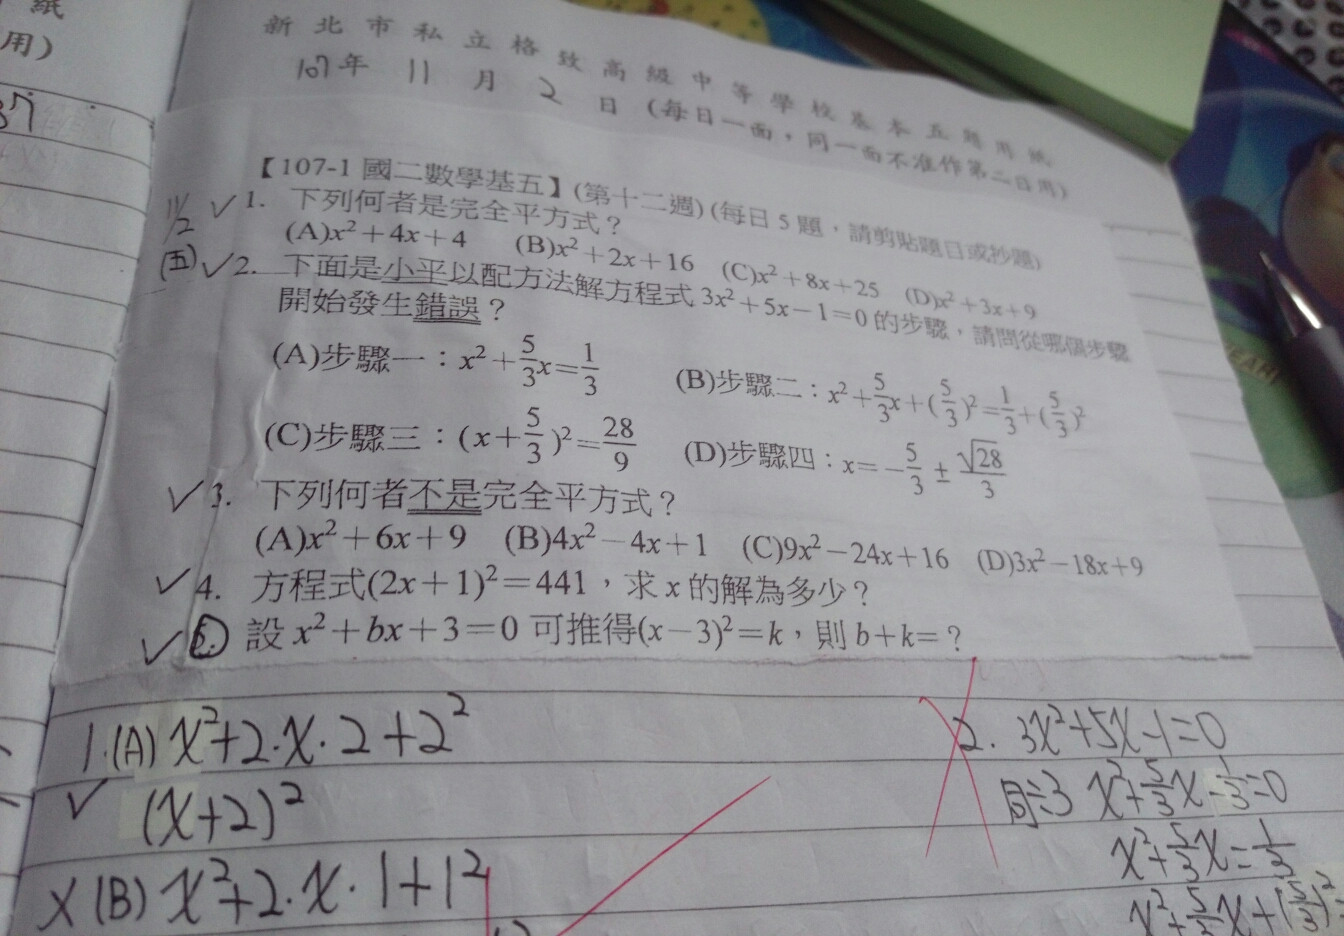 紙
用)
37
新北市私立格致高級中等學校基本五題用紙
107年 11 月 2 日 (每日一面,同一面不准作第二日用)
【107-1 國二數學基五】(第十二週) (每日 5 題,請剪貼題目或抄題)
11/2 ✓ 1. 下列何者是完全平方式?
(A)x²+4x+4 (B)x²+2x+16 (C)x²+8x+25 (D)x²+3x+9
(五) ✓ 2. 下面是小平以配方法解方程式 3x²+5x-1=0 的步驟,請問從哪個步驟
開始發生錯誤?
(A)步驟一:x²+5/3x=1/3 (B)步驟二:x²+5/3x+(5/3)²=1/3+(5/3)²
(C)步驟三:(x+5/3)²=28/9 (D)步驟四:x=-5/3±√28/3
✓ 3. 下列何者不是完全平方式?
(A)x²+6x+9 (B)4x²-4x+1 (C)9x²-24x+16 (D)3x²-18x+9
✓ 4. 方程式(2x+1)²=441,求 x 的解為多少?
✓ 5. 設 x²+bx+3=0 可推得(x-3)²=k,則 b+k=?
1.(A) x²+2·x·2+2²
✓ (x+2)²
X (B) x²+2·x·1+1²
2. 3x²+5x-1=0
同÷3 x²+5/3x-1/3=0
x²+5/3x=1/3
x²+5/3x+(5/3)²